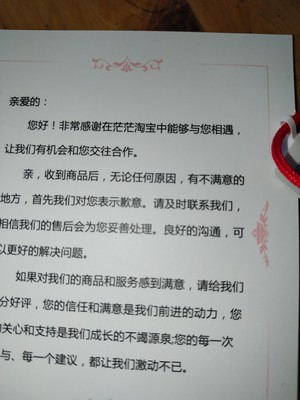 亲爱的：
您好！非常感谢在茫茫淘宝中能够与您相遇，
让我们有机会和您交往合作。
亲，收到商品后，无论任何原因，有不满意的
地方，首先我们对您表示歉意。请及时联系我们，
相信我们的售后会为您妥善处理。良好的沟通，可
以更好的解决问题。
如果对我们的商品和服务感到满意，请给我们
分好评，您的信任和满意是我们前进的动力，您
的关心和支持是我们成长的不竭源泉;您的每一次
与、每一个建议，都让我们激动不已。